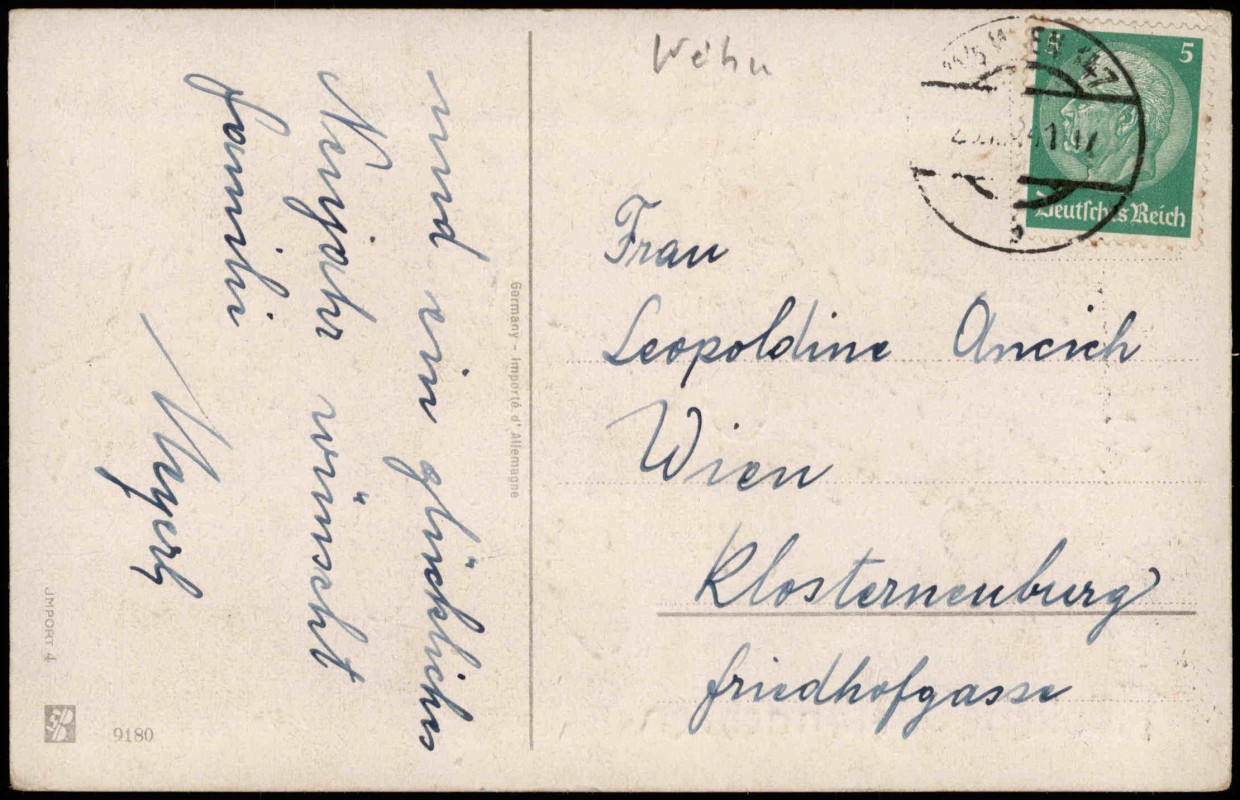 und ein glückliches
Neujahr wünscht
Familie
Germany - Importé d'Allemagne
JMPORT 4
9180
Wien 147
5
Deutsches Reich
Frau
Leopoldine Ancich
Wien
Klosterneuburg
friedhofgasse